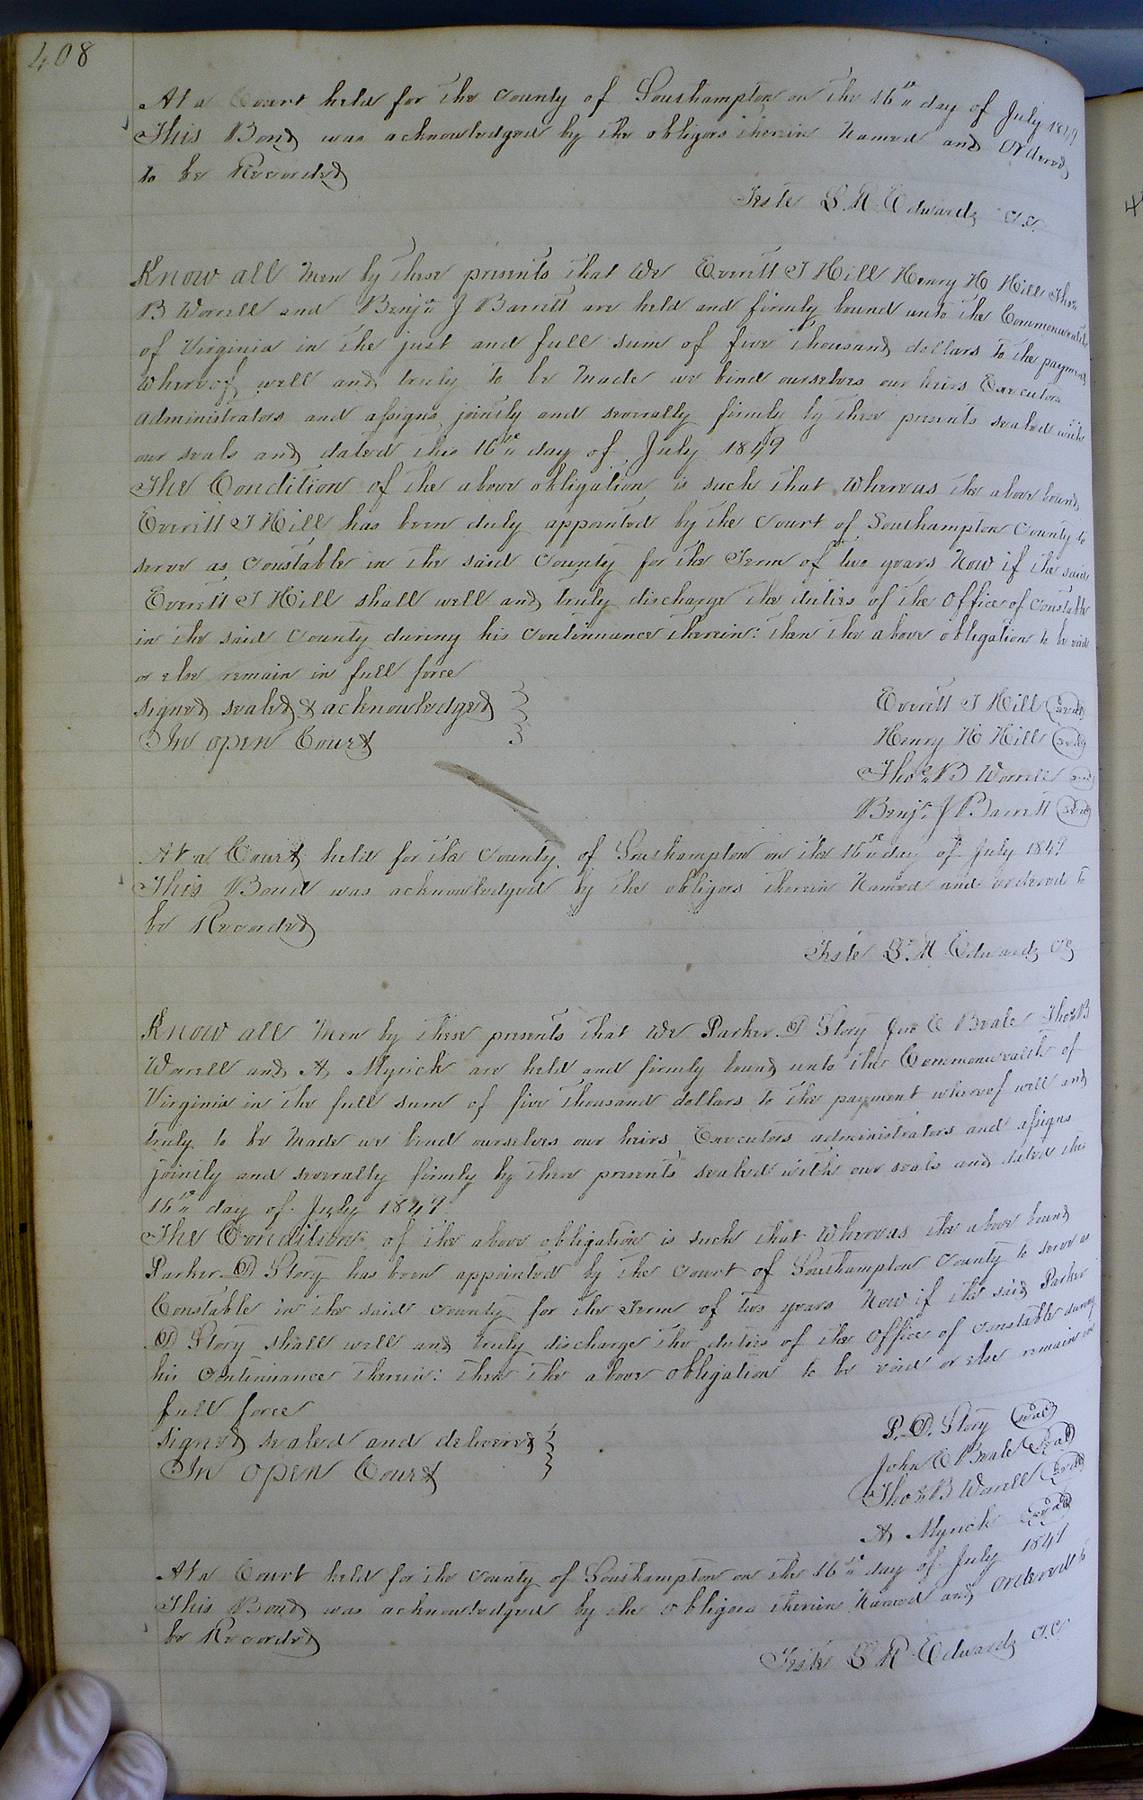 408
At a Court held for the County of Southampton on the 16th day of July 1849
This Bond was acknowledged by the obligors therein Named and Ordered
to be Recorded
Teste L. R. Edwards C.C.
Know all Men by these presents that We Everitt T Hill Henry H Hill Thos
B Worrell and Benjn J Barrett are held and firmly bound unto the Commonwealth
of Virginia in the just and full sum of five thousand dollars to the payment
whereof well and truly to be Made we bind ourselves our heirs Executors
administrators and assigns jointly and severally firmly by these presents sealed with
our seals and dated this 16th day of July 1849
The Condition of the above obligation is such that Whereas the above bound
Everitt T Hill has been duly appointed by the Court of Southampton County to
serve as Constable in the said County for the Term of two years Now if the said
Everitt T Hill shall well and truly discharge the duties of the Office of Constable
in the said County during his Continuance therein: then the above obligation to be void
or else remain in full force
signed sealed & acknowledged
In open Court
Everitt T Hill seal
Henry H Hill seal
Thos B Worrell seal
Benjn J Barrett seal
At a Court held for the County of Southampton on the 16th day of July 1849
This Bond was acknowledged by the obligors therein Named and ordered to
be Recorded
Teste L. R. Edwards CC
Know all Men by these presents that We Parker D Story Jno E Beale Thos B
Worrell and A, Myrick are held and firmly bound unto the Commonwealth of
Virginia in the full sum of five thousand dollars to the payment whereof well and
truly to be Made we bind ourselves our heirs Executors administrators and assigns
jointly and severally firmly by these presents sealed with our seals and dated this
16th day of July 1849
The Condition of the above obligation is such that Whereas the above bound
Parker D Story has been appointed by the Court of Southampton County to serve as
Constable in the said County for the Term of two years Now if the said Parker
D Story shall well and truly discharge the duties of the Office of Constable during
his Continuance therein: then the above obligation to be void or else remain in
full force
signed sealed and delivered
In open Court
P. D. Story seal
John E Beale seal
Thos B Worrell seal
A, Myrick seal
At a Court held for the County of Southampton on the 16th day of July 1849
This Bond was acknowledged by the obligors therein Named and Ordered to
be Recorded
Teste L R Edwards C.C.